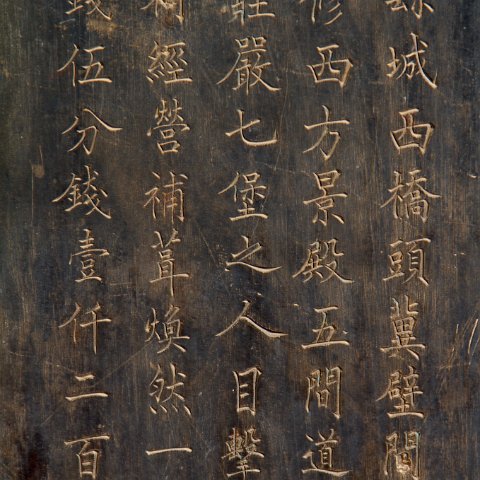 城西橋頭冀壁間
修西方景殿五間道
莊嚴七堡之人目擊
經營補葺煥然一
錢伍分錢壹仟二百